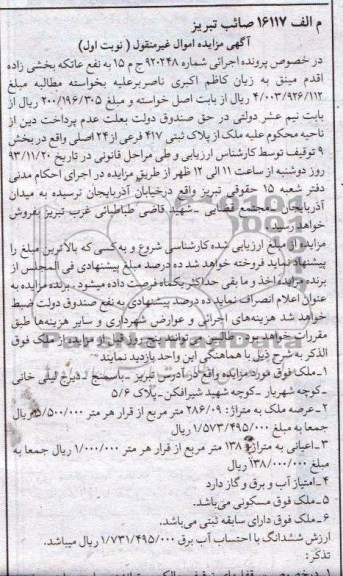 م الف ۱۶۱۱۷ صائب تبریز
آگهی مزایده اموال غیرمنقول ( نوبت اول )
در خصوص پرونده اجرائی شماره ۹۲۰۲۴۸ ج م ۱۵ به نفع عاتکه بخشی زاده
اقدم مینق به زیان کاظم اکبری ناصر برعلیه بخواسته مطالبه مبلغ
۴/۰۰۳/۹۲۶/۱۱۲ ریال از بابت اصل خواسته و مبلغ ۲۰۰/۱۹۶/۳۰۵ ریال از
بابت نیم عشر دولتی در حق صندوق دولت بعلت عدم پرداخت دین از
ناحیه محکوم علیه ملک از پلاک ثبتی ۴۱۷ فرعی از ۲۴ اصلی واقع در بخش
۹ توقیف توسط کارشناس ارزیابی و طی مراحل قانونی در تاریخ ۹۳/۱۱/۲۰
روز دوشنبه از ساعت ۱۱ الی ۱۲ ظهر از طریق مزایده در اجرای احکام مدنی
دفتر شعبه ۱۵ حقوقی تبریز واقع درخیابان آذربایجان نرسیده به میدان
آذربایجان مجتمع قضایی شهید قاضی طباطبائی غرب تبریز بفروش
خواهد رسید.
مزایده از مبلغ ارزیابی شده کارشناسی شروع و به کسی که بالاترین مبلغ را
پیشنهاد نماید فروخته خواهد شد ده درصد مبلغ پیشنهادی فی المجلس از
برنده مزایده اخذ و ما بقی حداکثر یکماه فرصت داده میشود . برنده مزایده به
عنوان اعلام انصراف نماید ده درصد پیشنهادی به نفع صندوق دولت ضبط
خواهد شد هزینه‌های اجرائی و عوارض شهرداری و سایر هزینه‌ها طبق
مقررات خواهد بود طالبین می‌توانند پنج روز قبل از مزایده از ملک فوق
الذکر به شرح ذیل با هماهنگی این واحد بازدید نمایند
۱-ملک فوق مورد مزایده واقع در آدرس تبریز - باسمنج - دیزج لیلی خانی
-کوچه شهریار -کوچه شهید شیرافکن-پلاک ۵/۶
۲-عرصه ملک به متراژ: ۲۸۶/۰۹ متر مربع از قرار هر متر ۵/۵۰۰/۰۰۰ ریال
جمعا به مبلغ ۱/۵۷۳/۴۹۵/۰۰۰ ریال
۳-اعیانی به متراژ: ۱۳۸ متر مربع از قرار هر متر ۱/۰۰۰/۰۰۰ ریال جمعا به
مبلغ ۱۳۸/۰۰۰/۰۰۰ ریال
۴-امتیاز آب و برق و گاز دارد
۵-ملک فوق مسکونی می‌باشد.
۶-ملک فوق دارای سابقه ثبتی می‌باشد.
ارزش ششدانگ با احتساب آب برق ۱/۷۳۱/۴۹۵/۰۰۰ ریال میباشد.
تذکر: